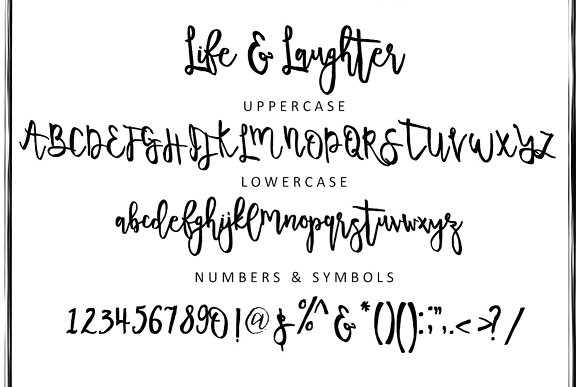 Life & Laughter
UPPERCASE
ABCDEFGHIJKLMNOPQRSTUVWXYZ
LOWERCASE
abcdefghijklmnopqrstuvwxyz
NUMBERS & SYMBOLS
1234567890!@$%^&*()():;'",.<>?/